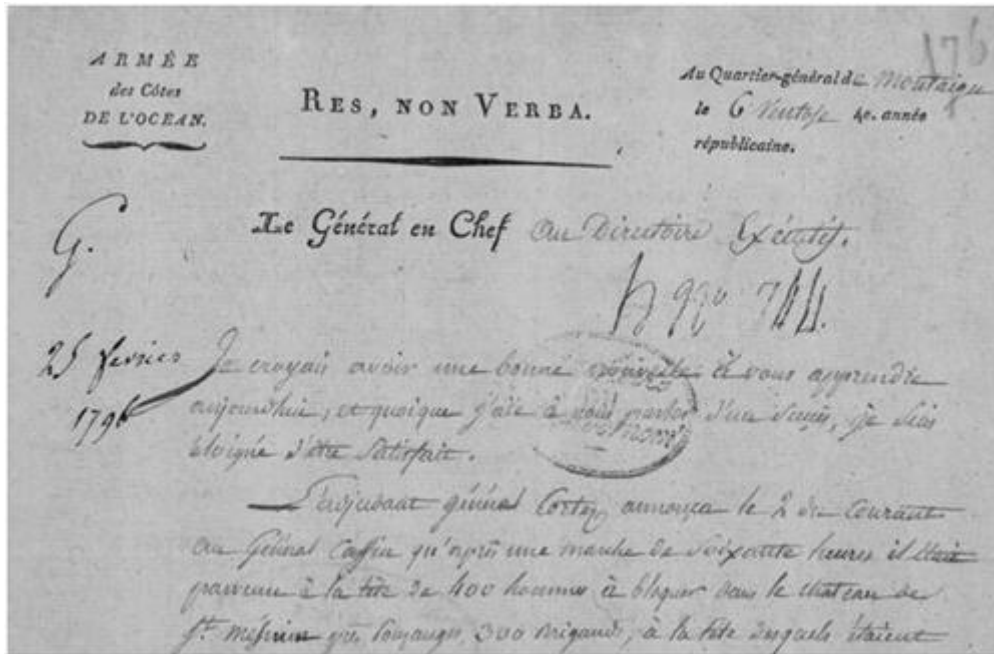 176
ARMÉE
des Côtes
DE L'OCÉAN.
RES, NON VERBA.
Au Quartier-général de Montaigu
le 6 Ventose 4e. année
républicaine.
Le Général en Chef au Directoire Exécutif.
G.
744.
25 fevrier
1796
Je croyais avoir une bonne nouvelle à vous apprendre
aujourdhui, et quoique j'aie à vous parler d'un succès, je suis
éloigné d'être satisfait.
L'adjudant général Cortez annonça le 2 du Courant
au Général Caffin qu'après une marche de soixante heures il était
parvenu à la tête de 400 hommes à bloquer dans le chateau de
St. Mesmin près Pouzauges, 300 brigands, à la tête desquels étaient